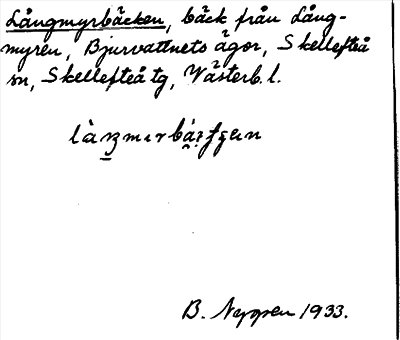 Långmyrbäcken, bäck från Lång-
myren, Bjurvattnets ägor, Skellefteå
sn, Skellefteå tg, Västerb. l.
B. 1933.